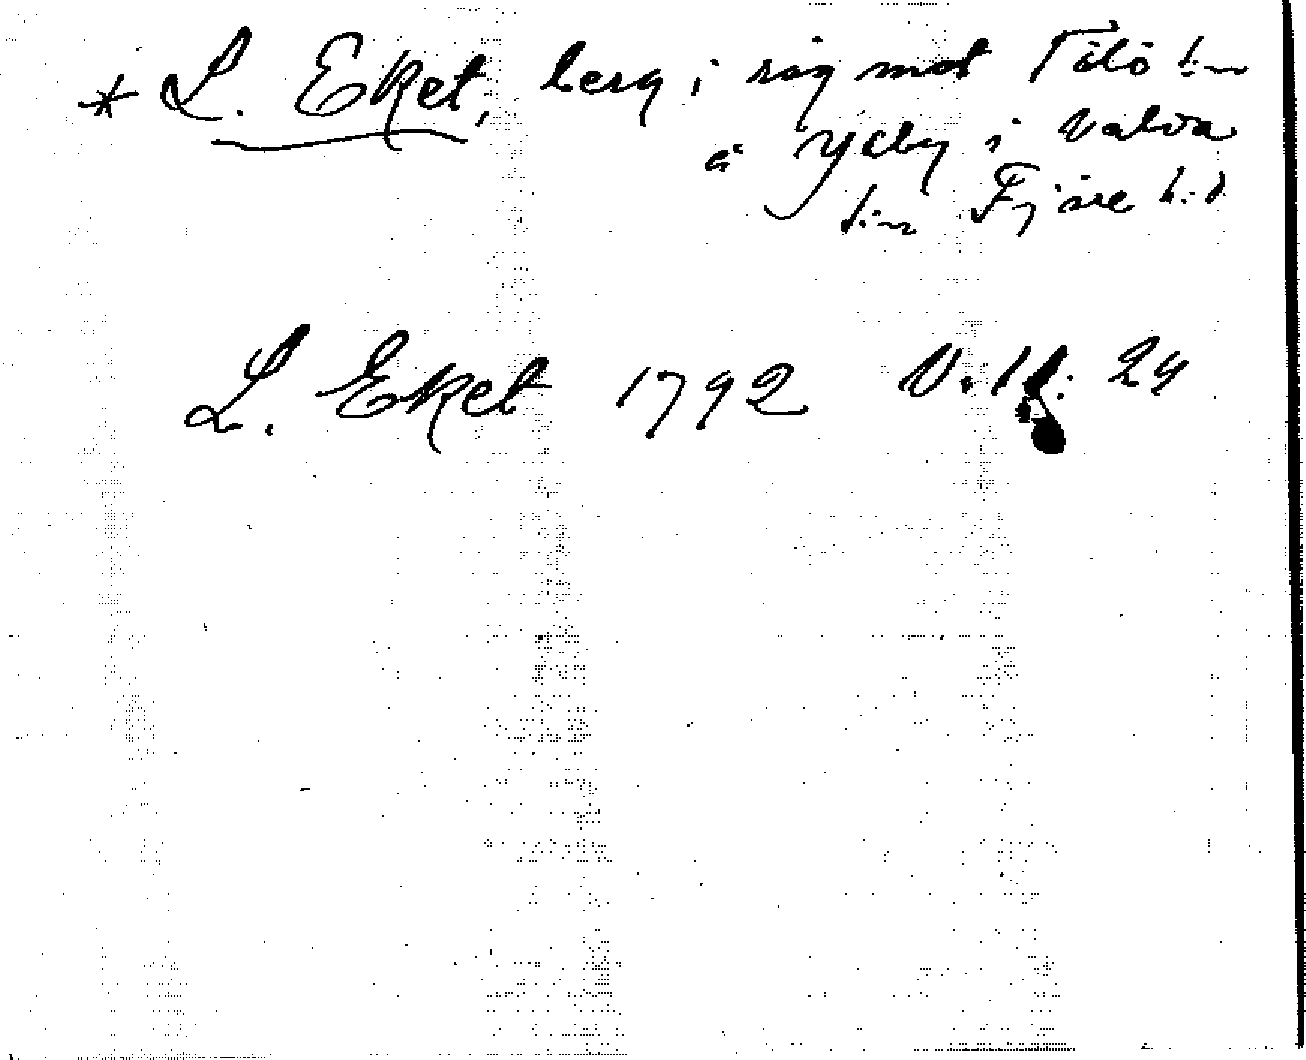 * L. Eket, berg i råg mot Tölö sn
å Ryeby i Valda
sn Fjäre hd
L. Eket 1792 V. 11: 24